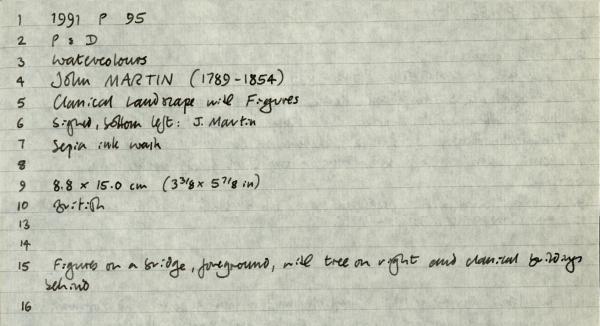 1 1991 P 95
2 P & D
3 Watercolours
4 John MARTIN (1789-1854)
5 Classical Landscape with Figures
6 Signed, bottom left: J. Martin
7 Sepia ink wash
8
9 8.8 x 15.0 cm (3 3/8 x 5 7/8 in)
10 British
13
14
15 Figures on a bridge, foreground, with tree on right and classical buildings
behind
16